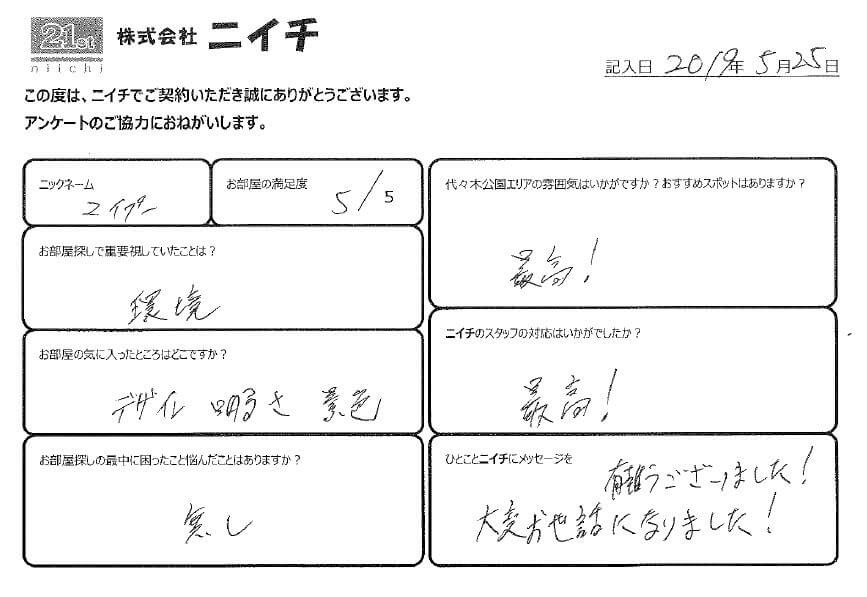 21st
niichi
株式会社 ニイチ
記入日 2019年 5月25日
この度は、ニイチでご契約いただき誠にありがとうございます。
アンケートのご協力におねがいします。
ニックネーム
エイプー
お部屋の満足度
5/5
お部屋探しで重要視していたことは？
環境
お部屋の気に入ったところはどこですか？
デザイン 明るさ 景色
お部屋探しの最中に困ったこと悩んだことはありますか？
無し
代々木公園エリアの雰囲気はいかがですか？おすすめスポットはありますか？
最高！
ニイチのスタッフの対応はいかがでしたか？
最高！
ひとことニイチにメッセージを
有難うございました！
大変お世話になりました！